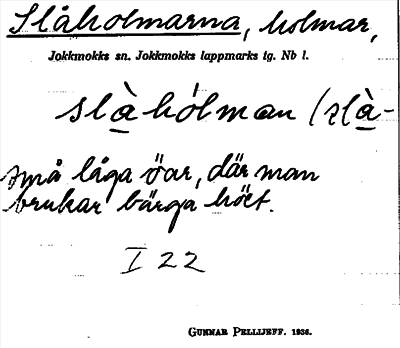 Slåholmarna, holmar,
Jokkmokks sn. Jokkmokks lappmarks tg. Nb l.
slà̲hólman (slà̲-
små låga öar, där man
brukar bärga höet.
I 22
GUNNAR PELLIJEFF. 1936.